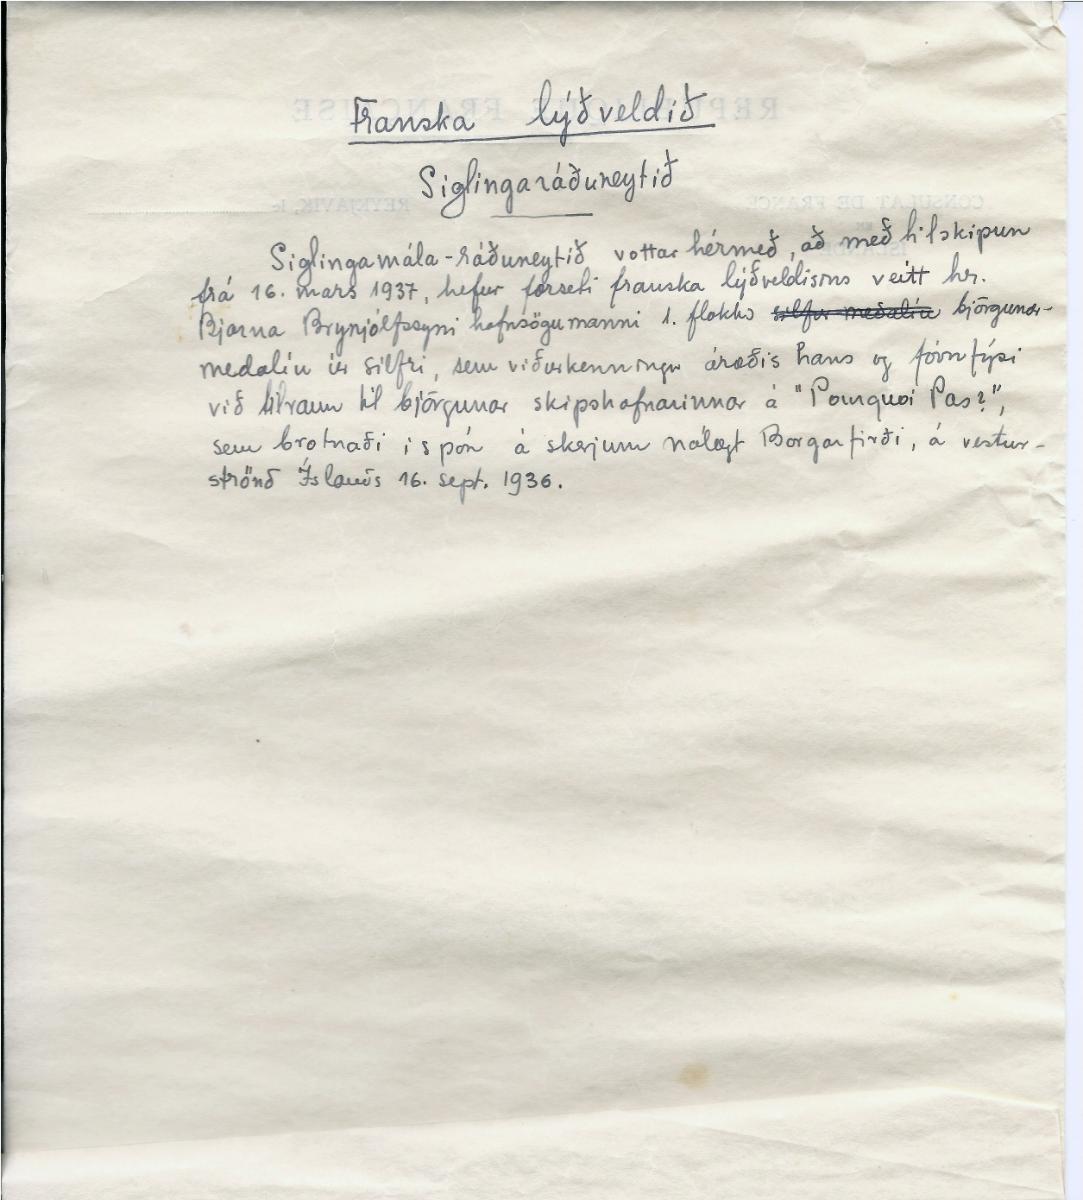 Franska lýðveldið
Siglingaráðuneytið
Siglingamála-ráðuneytið vottar hérmeð, að með tilskipun
frá 16. mars 1937, hefur forseti franska lýðveldisins veitt hr.
Bjarna Brynjólfssyni hafnsögumanni 1. flokks silfur medalíu björgunar-
medalíu úr silfri, sem viðurkenningu áræðis hans og fórnfýsi
við tilraun til björgunar skipshafnarinnar á "Pourquoi Pas?",
sem brotnaði í spón á skerjum nálægt Borgarfirði, á vestur-
strönd Íslands 16. sept. 1936.